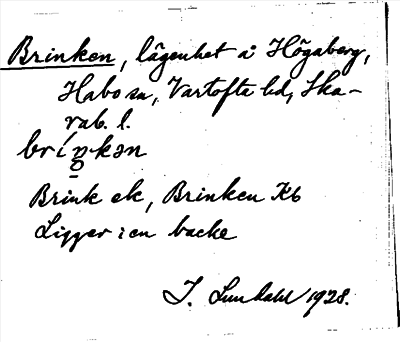 Brinken, lägenhet å Högaberg,
Habo sn, Vartofta hd, Ska-
rab. l.
briŋkən
Brink ek, Brinken Kb
Ligger i en backe
I. Lundahl 1928.